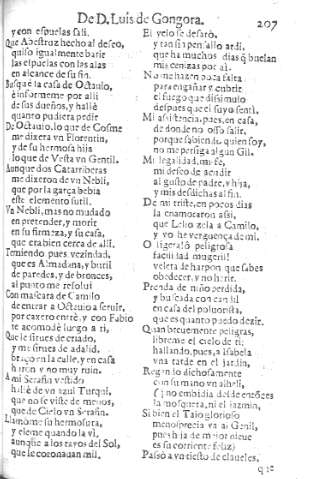 De D. Luis de Gongora. 207
y con espuelas sali.
Que Abestruz hecho al deseo,
quiso igualmente batir
las espuelas con las alas
en alcance de su fin.
Busqué la casa de Octauio,
è informeme por alli
de sus dueños, y hallè
quanto pudiera pedir
De Octauio, lo que de Cosme
me dixera vn Florentin,
y de su hermosa hija
lo que de Vesta vn Gentil.
Aunque dos Catarriberas
me dixeron de vn Nebli,
que por la garça bebia
este elemento sutil.
Vn Nebli, mas no mudado
en pretender, y morir
en su firmeza, y su casa,
que tambien cerca de alli.
Temiendo pues vezindad,
que es Almadana, y buril
de paredes, y de bronces,
al punto me resolui
Con mascara de Camilo
de entrar a Octauio a seruir,
por caxero entrè, y con Fabio
te acomodè luego a ti,
Que le sirues de criado,
y me sirues de adalid,
braço en la calle, y en casa
y no muy ruin.
A mi Serafin vestido
hallè de vn azul Turqui,
que no se viste de menos,
que de Cielo vn Serafin.
Llamòme su hermosura,
y eleme quando la vi,
aunque a los rayos del Sol,
que le coronauan mil.
El yelo se desatò,
y tan sin pensallo ardi,
que ha muchos dias q̃ buelan
mis cenizas por ai.
No me hazen poca falta
para engañar y cubrir
el fuego que dissimulo
despues que el suyo senti.
Mi assistencia, pues, en casa,
de donde no osso salir,
porque sabiendo quien soy,
no me persiga algun Gil.
Mi legalidad, mi fe,
mi deseo de acudir
al gusto de padre, y hija,
y mis desdichas al fin.
De mi triste, en pocos dias
la enamoraron assi,
que Lelio zela a Camilo,
y yo he verguença de mi.
O ligera! ò peligrosa
facilidad mugeril!
veleta de harpon que sabes
obedecer, y no herir.
Prenda de niño perdida,
y buscada con candil
en casa del poluorista,
que es quanto puedo dezir.
Quan breuemente peligras,
libreme el cielo de ti;
hallando, pues, a Isabela
vna tarde en el jardin,
Regando dichosamente
con su mano vn alheli,
(no embidia desde entonces
la mosqueta, ni el jazmin,
Si bien el Tajo glorioso
menosprecia va al Genil,
pues hija de mejor nieue
es su corriente feliz)
Passò a vn tiesto de claueles,